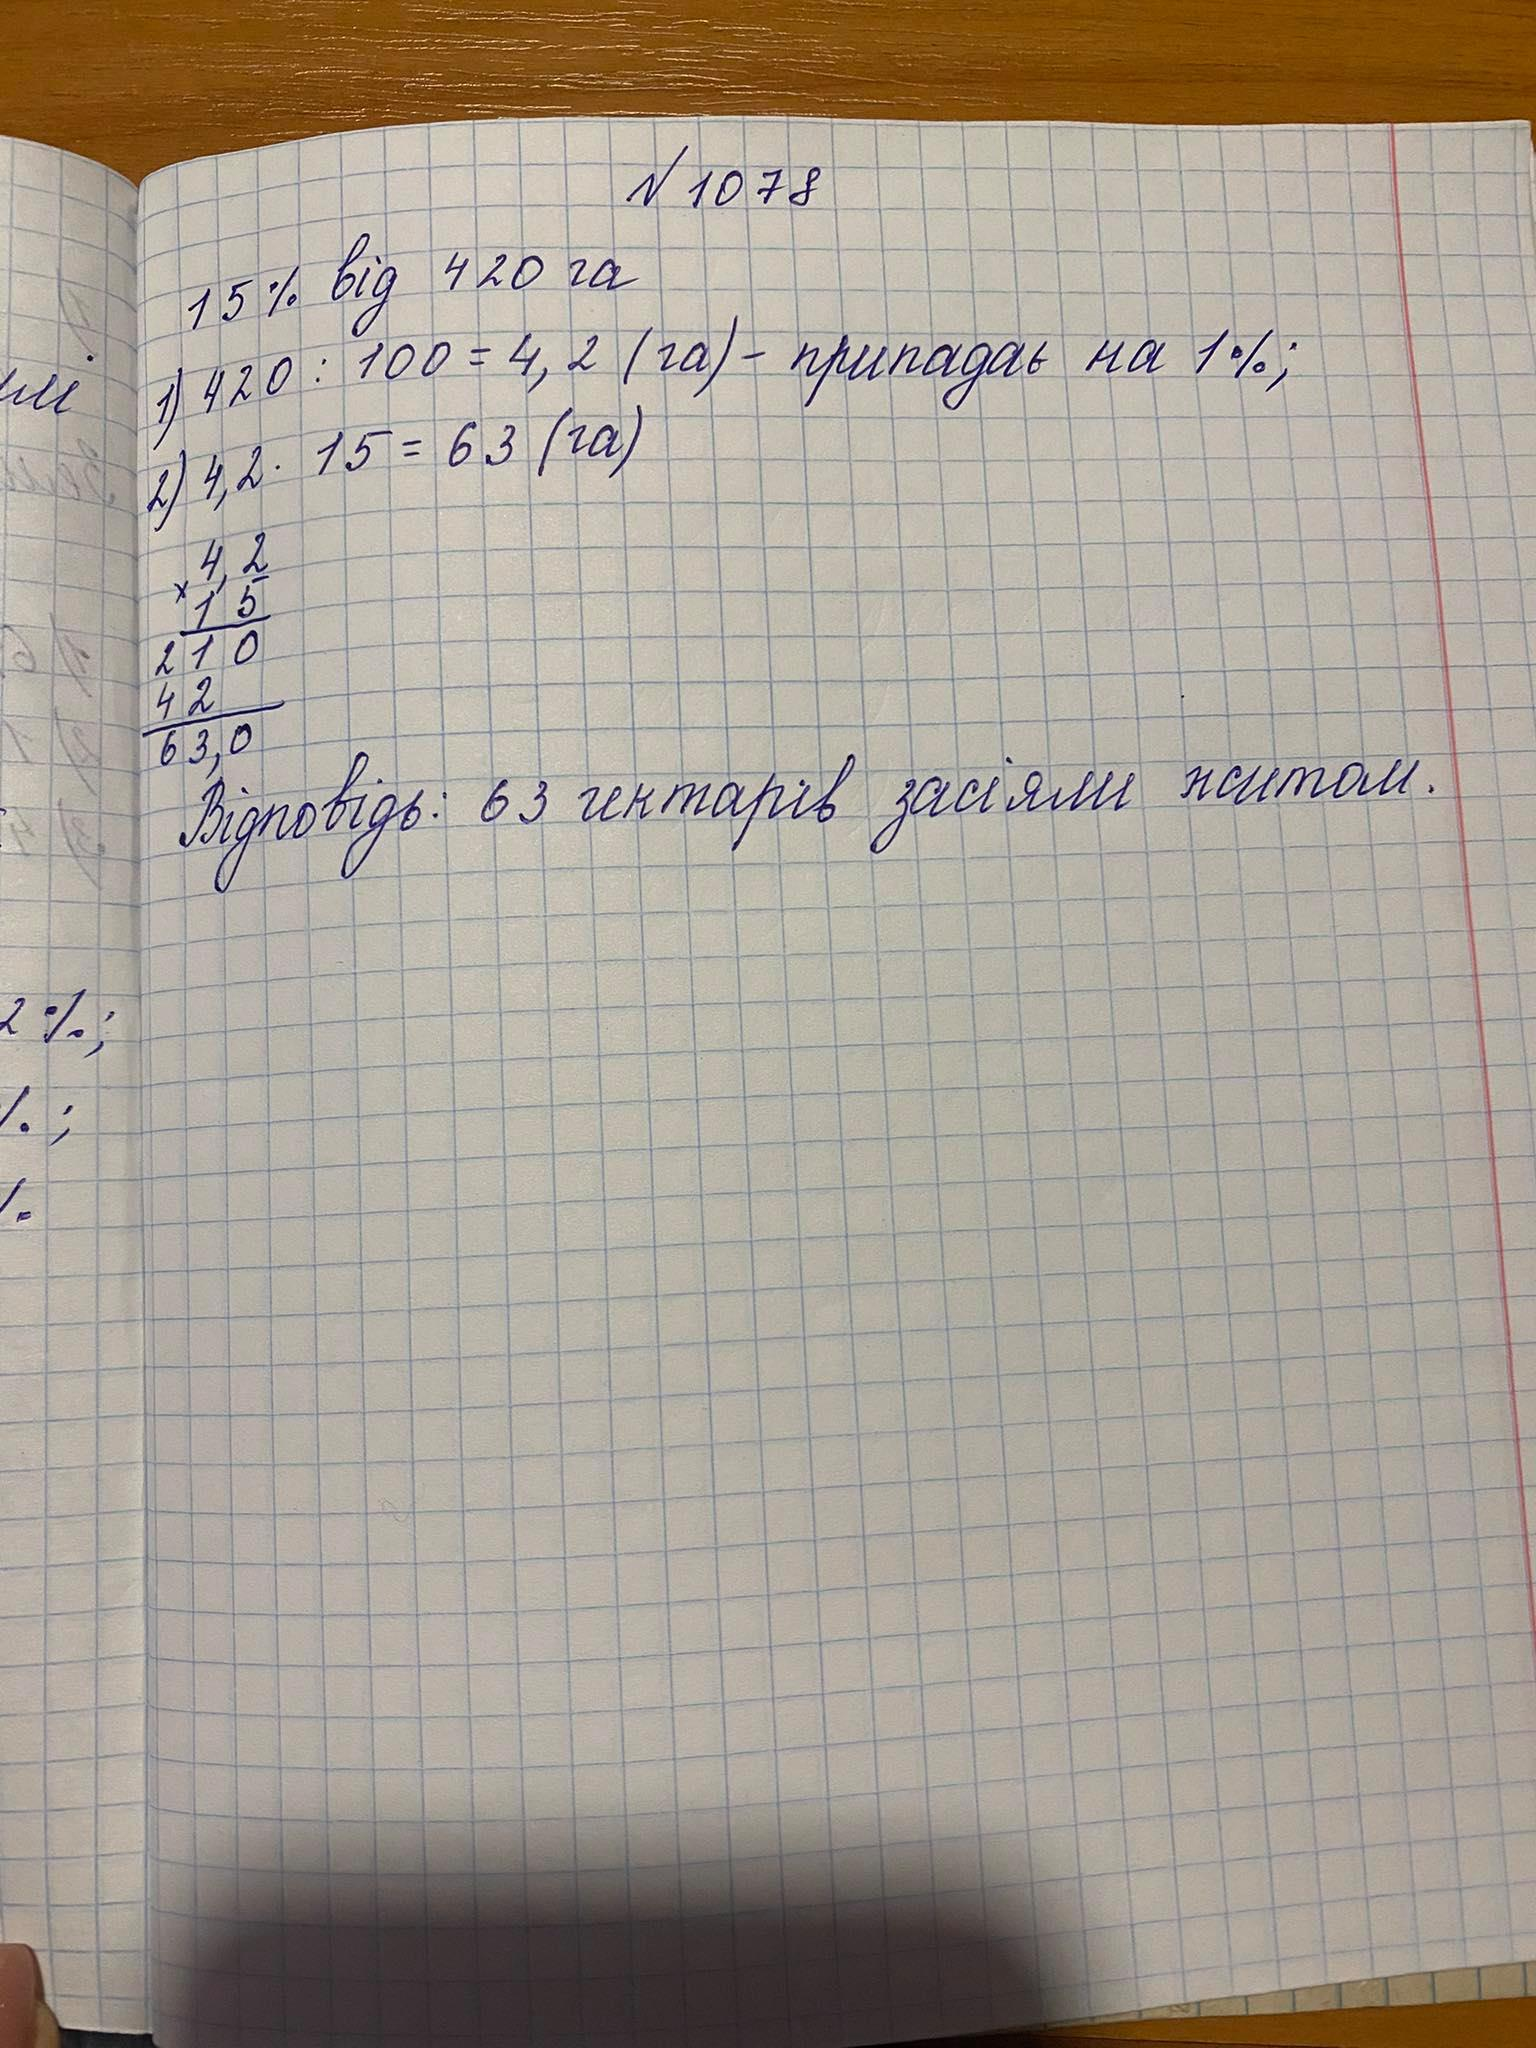 № 1078
15% від 420 га
1) 420 : 100 = 4,2 (га) - припадає на 1%;
2) 4,2 · 15 = 63 (га)
4,2
× 15
210
42
63,0
Відповідь: 63 гектарів засіяли житом.
2%;
%;
%